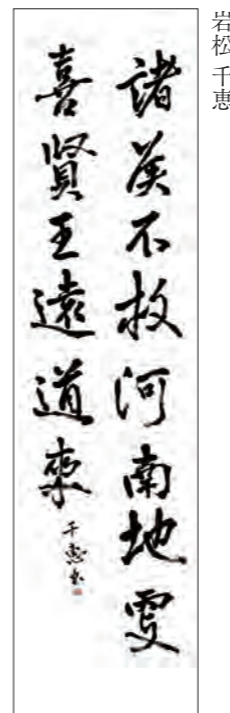 岩松 千恵
諸侯不救河南地更
喜賢王遠道來
千惠書